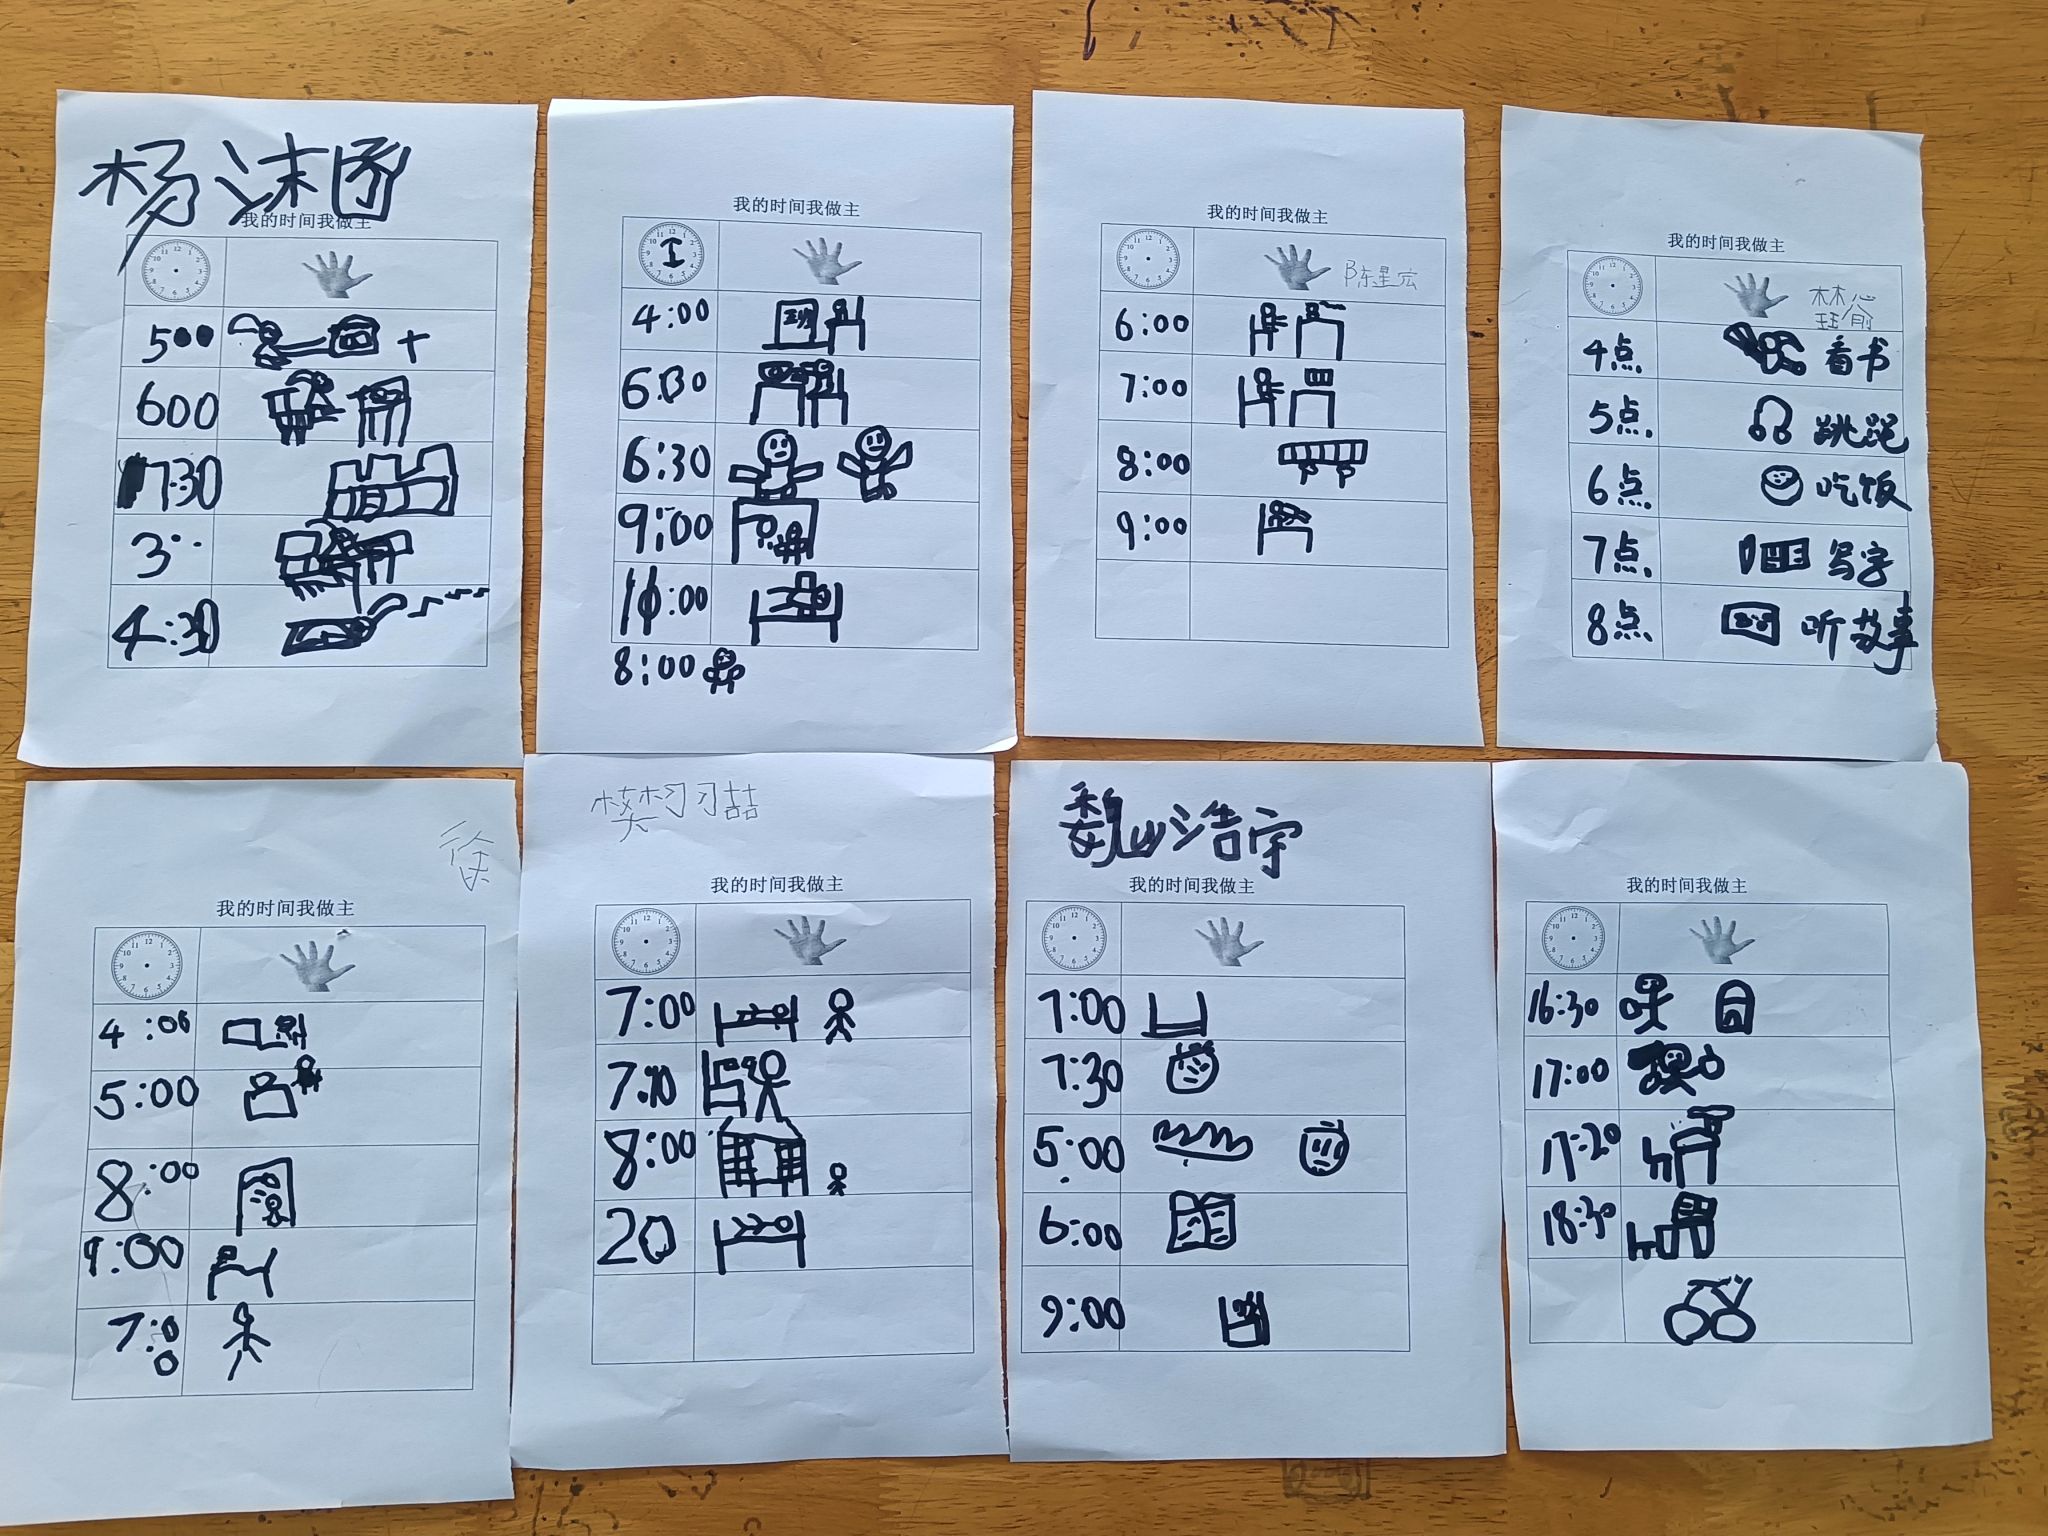 杨沫
我的时间我做主
500
600
7:30
3
4:30
我的时间我做主
4:00
6:30
9:00
10:00
8:00
我的时间我做主
陈星宏
6:00
7:00
8:00
9:00
我的时间我做主
林
4点 看书
5点 跳绳
6点 吃饭
7点 写字
8点 听故事
徐
我的时间我做主
4:00
5:00
8:00
9:00
7:00
樊
喆
我的时间我做主
7:00
8:00
20
魏浩宇
我的时间我做主
7:00
7:30
5:00
6:00
9:00
我的时间我做主
16:30
17:00
17:20
18:30